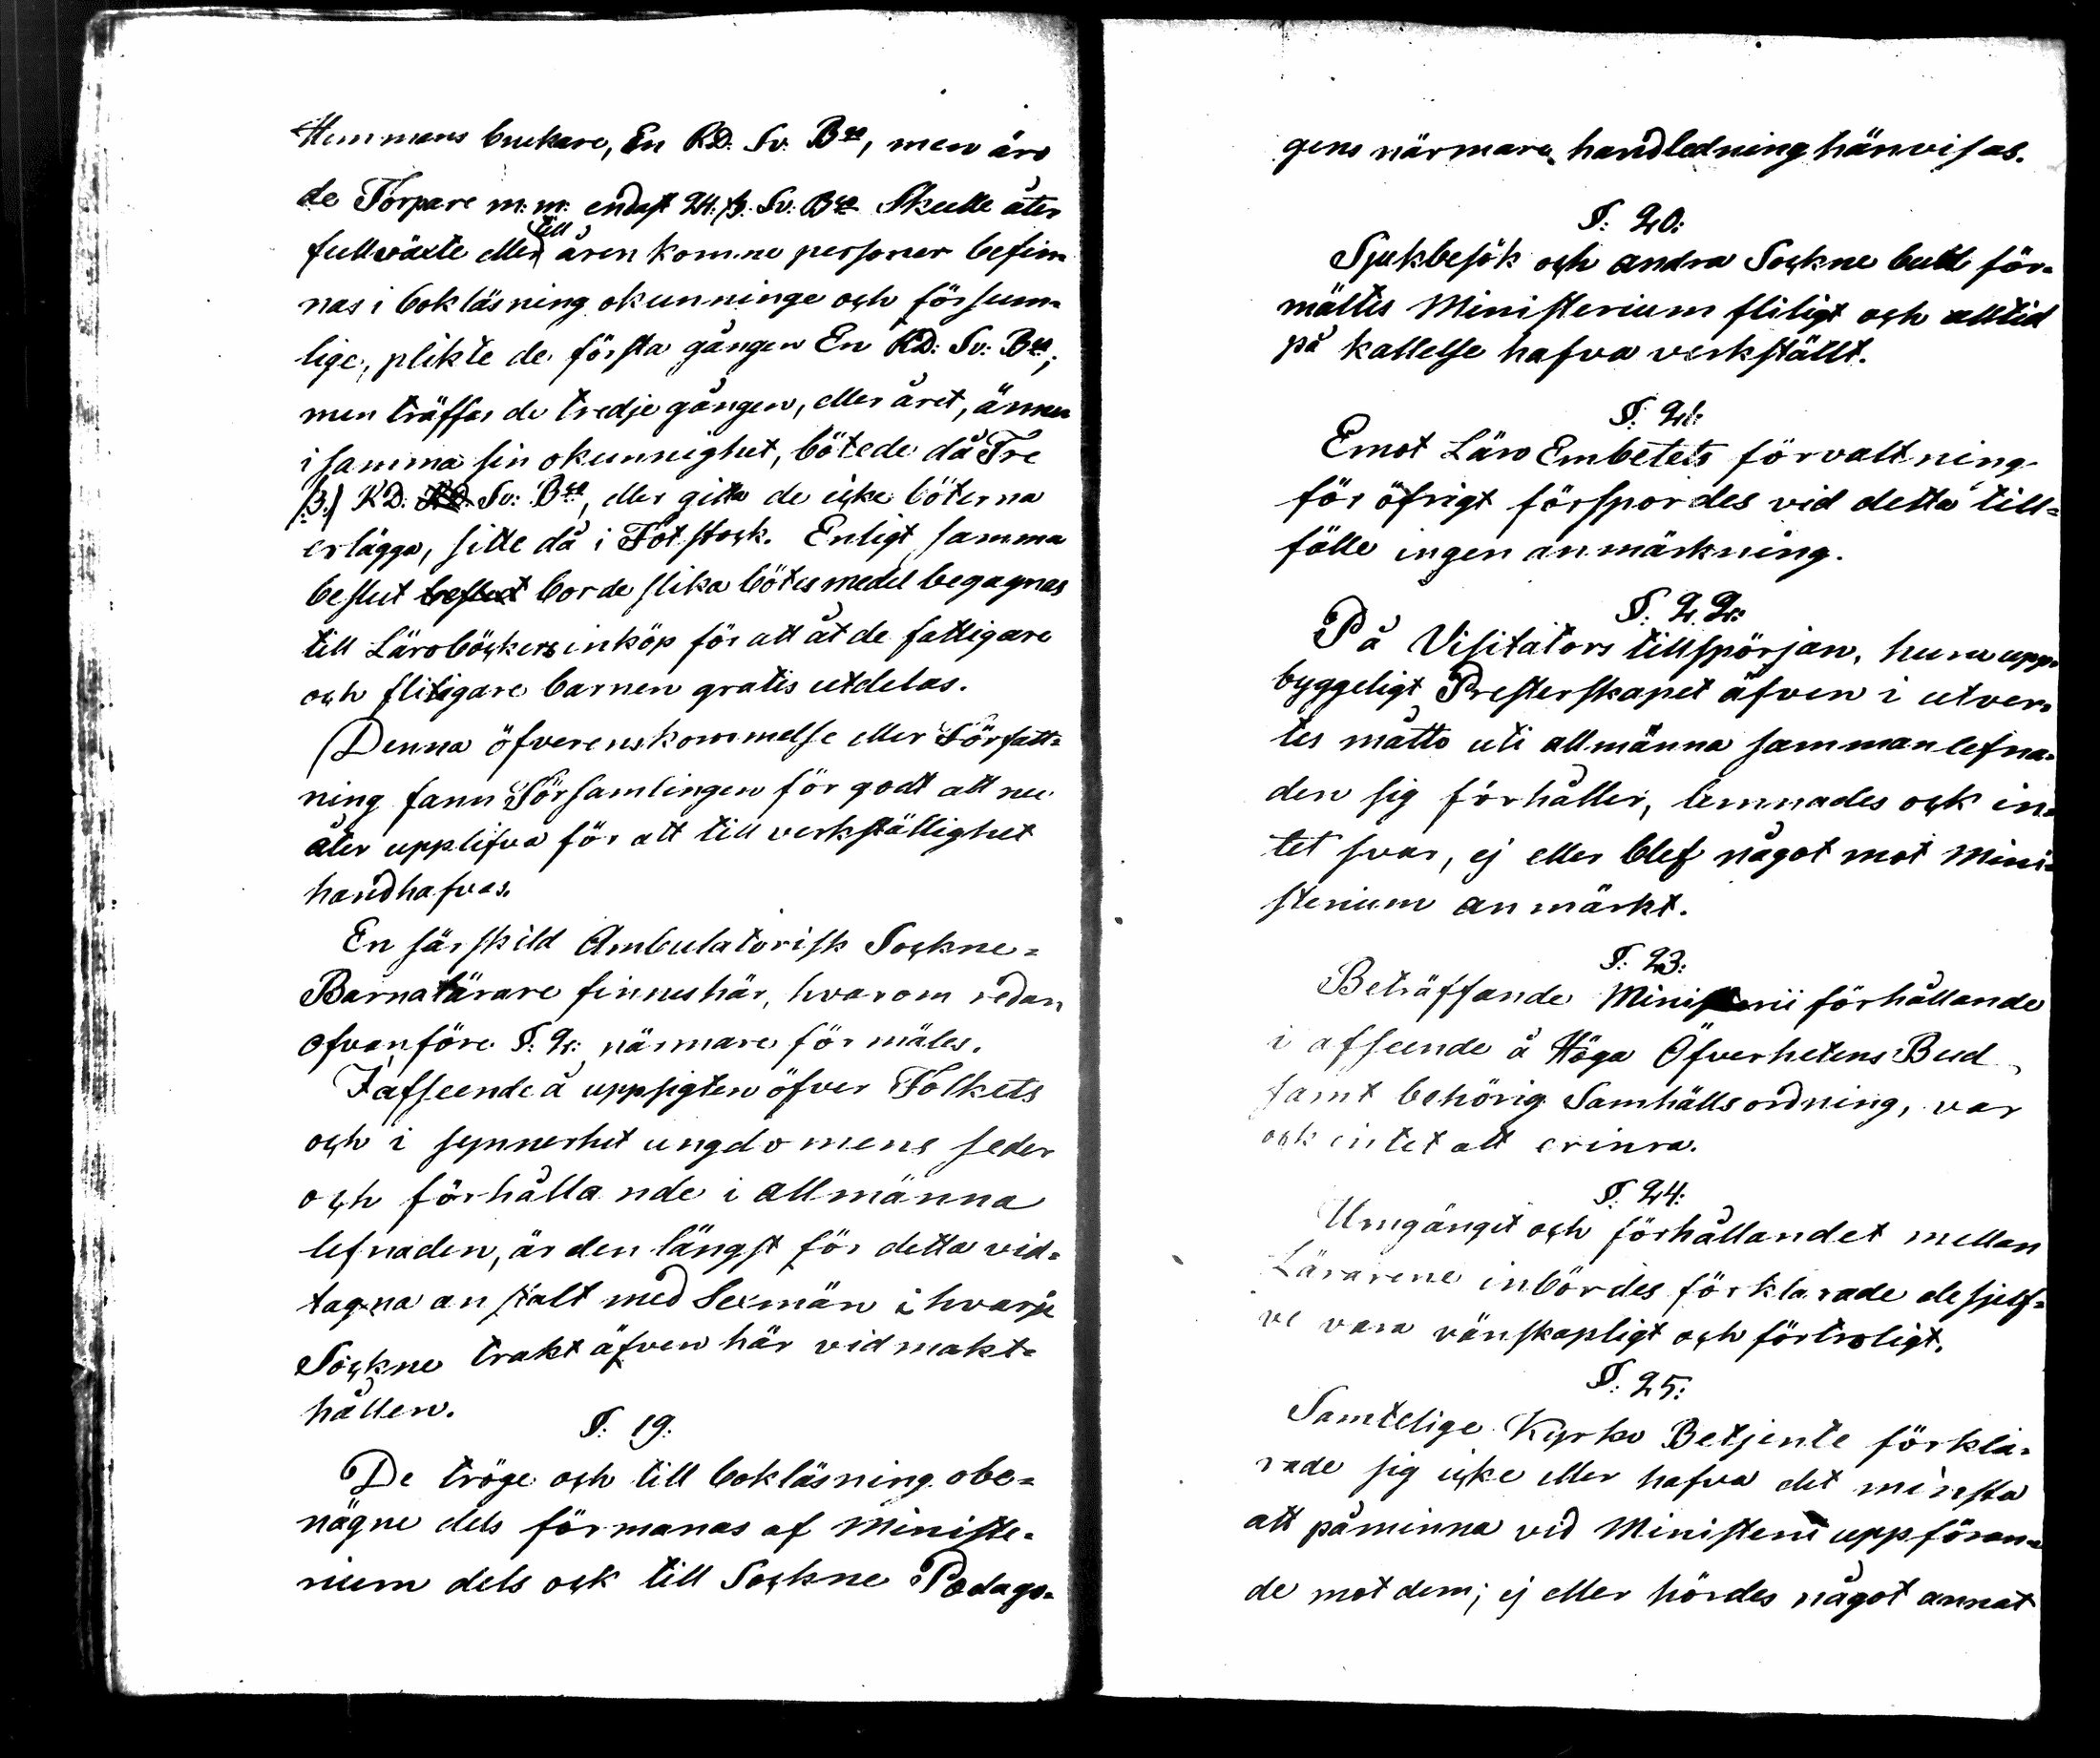 Hemmans brukare, En RD. Sv. B<sup>co</sup>, men äro
de Torpare m: m: endast 24. ß. Sv: B<sup>co</sup> Skulle åter
fullväxte eller till åren komne personer befin-
nas i bokläsning okunninge och försum-
lige, plikte de första gången En RD: Sv: B<sup>co</sup>;
men träffas de tredje gången, eller året, ännu
i samma sin okunnighet, böte de då Tre
/3./ RD: RD. Sv: B<sup>co</sup>, eller gitta de icke böterna
erlägga, sitte då i Fotstock. Enligt samma
beslut beslut borde slika bötesmedel begagnas
till Läroböckers inköp för att åt de fattigare
och flitigare barnen gratis utdelas.
Denna öfverenskommelse eller Författ-
ning fann Församlingen för godt att nu
åter upplifva för att till verkställighet
handhafvas.
En särskild Ambulatorisk Sockne-
Barnalärare finnes här, hvarom redan
ofvanföre §: 2: närmare förmäles.
I afseende å uppsigten öfver Folkets
och i synnerhet ungdomens seder
och förhållande i allmänna
lefnaden, är den längst för detta vid-
tagna anstalt med Sexmän i hvarje
Sockne trakt äfven här vid makt-
hållen.
§. 19.
De tröge och till bokläsning obe-
nägne dels förmanas af Ministe-
rium dels ock till Sockne Pædago-
gens närmare handledning hänvisas.
§: 20:
Sjukbesök och andra Sockne bud för-
mältes Ministerium flitigt och alltid
på kallelse hafva verkställt.
§: 21:
Emot Läro Embetets förvaltning
för öfrigt förspordes vid detta till-
fälle ingen anmärkning.
§: 22:
På Visitators tillspörjan, huru upp-
byggeligt Presterskapet äfven i utver-
tes måtto uti allmänna sammanlefna-
den sig förhåller, lemnades ock in-
tet svar, ej eller blef något mot Mini-
sterium anmärkt.
§: 23:
Beträffande Ministerii förhållande
i afseende å Höga Öfverhetens Bud
samt behörig Samhällsordning, var
ock intet att erinra.
§: 24:
Umgänget och förhållandet mellan
Lärarene inbördes förklarade de sjelf-
ve vara vänskapligt och förtroligt.
§: 25:
Samtelige Kyrko Betjente förkla-
rade sig icke eller hafva det minsta
att påminna vid Ministerii uppföran-
de mot dem; ej eller hördes något annat